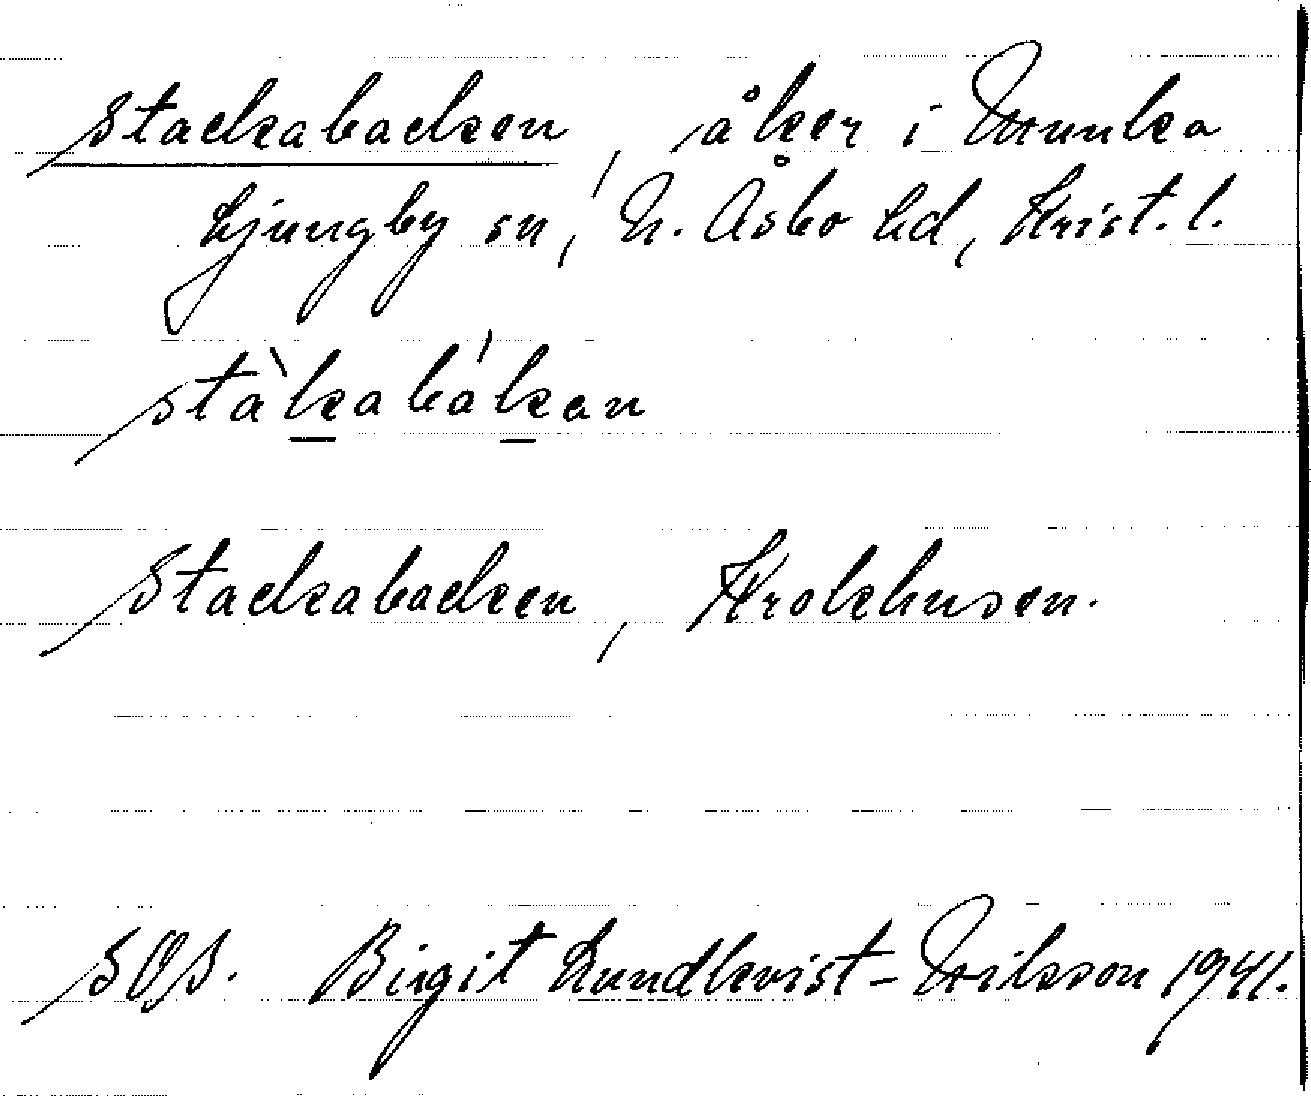 Stackabacken, åker i Munka
Ljungby sn, N. Åsbo hd, Krist. l.
stàkabákan
Stackabacken, Krokhusen.
SOS. Birgit Lundkvist-Nilsson 1941.